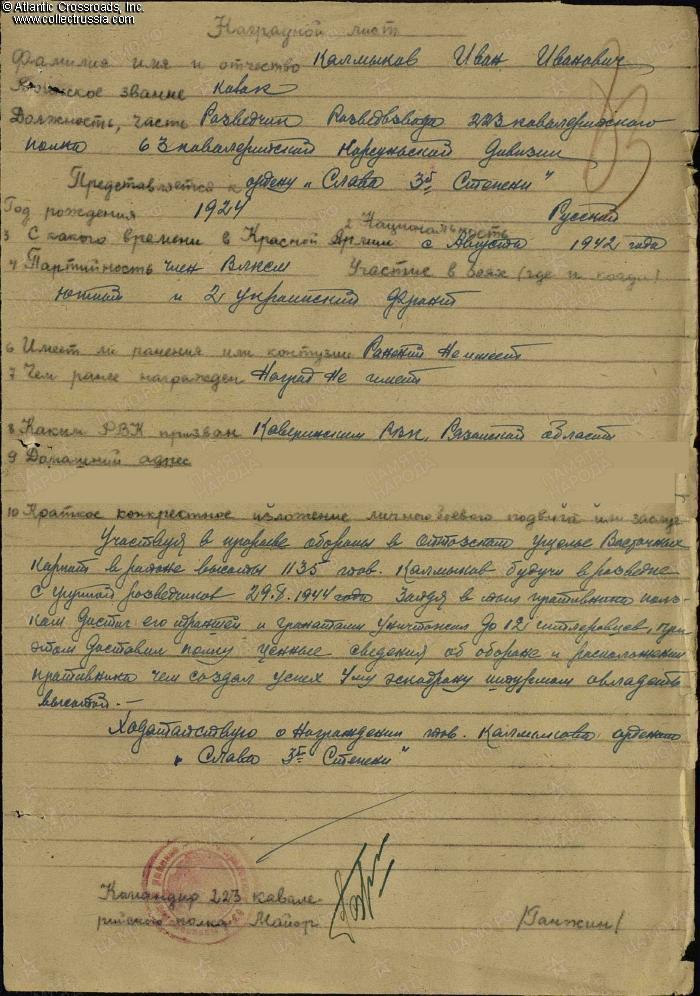 © Atlantic Crossroads, Inc.
www.collectrussia.com
Наградной лист
Фамилия имя и отчество Калмыков Иван Иванович
Воинское звание казак
Должность, часть Разведчик Разведвзвода 223 кавалерийского
полка 63 кавалерийской Корсуньской дивизии
Представляется к ордену „Слава 3й Степени"
Год рождения 1924 2 Национальность Русский
3 С какого времени в Красной Армии с Августа 1942 года
4 Партийность член Влксм Участие в боях (где и когда)
Южный и 2 украинский Фронт
6 Имеет ли ранения или контузии Ранений Не имеет
7 Чем ранее награжден Наград Не имеет
8 Каким РВК призван Каверинским Рвк, Рязанской области
9 Домашний адрес
10 Краткое конкретное изложение личного боевого подвига или заслуг
Участвуя в прорыве обороны в ущелье Восточных
Карпат в районе высоты 1135 тов. Калмыков будучи в разведке
с группой разведчиков 29.8.1944 года Зайдя в тыл противника полз-
ком достиг его траншей и гранатами Уничтожил до 12 гитлеровцев, при
этом доставил полку ценные сведения об обороне и расположении
противника чем создал успех 4му эскадрону штурмом овладеть
высотой.-
Ходатайствую о Награждении тов. Калмыкова орденом
„Слава 3й Степени"
Командир 223 кавале-
рийского полка Майор /Ганжин/